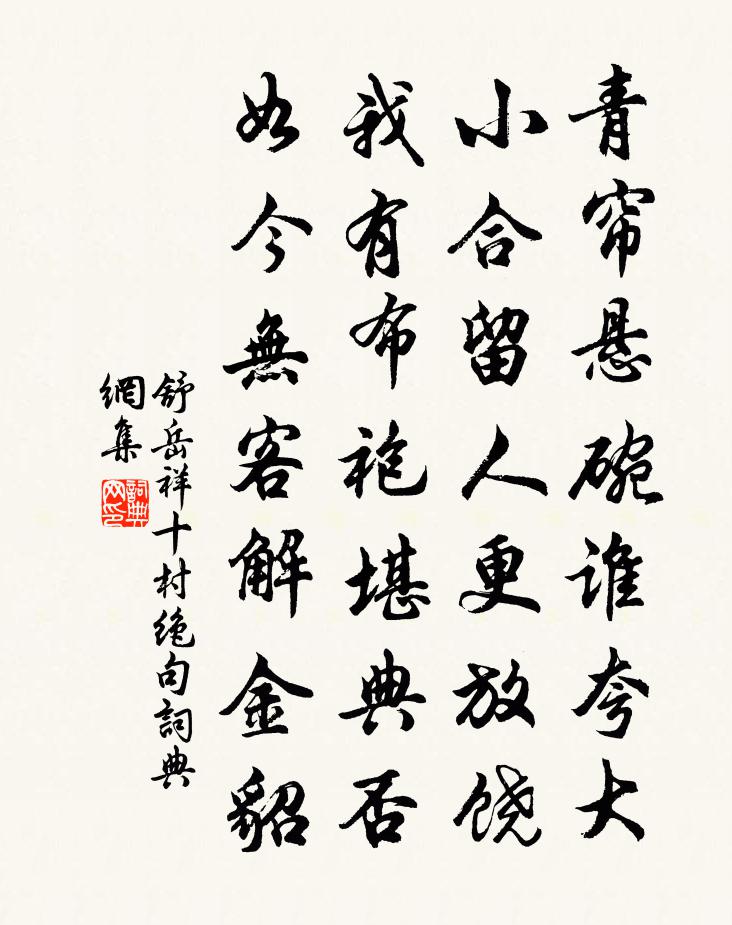 青帘悬碗谁夸大
小合留人更放饶
我有布袍堪典否
如今無客解金貂
舒岳祥十村绝句詞典
網集
詞典网印